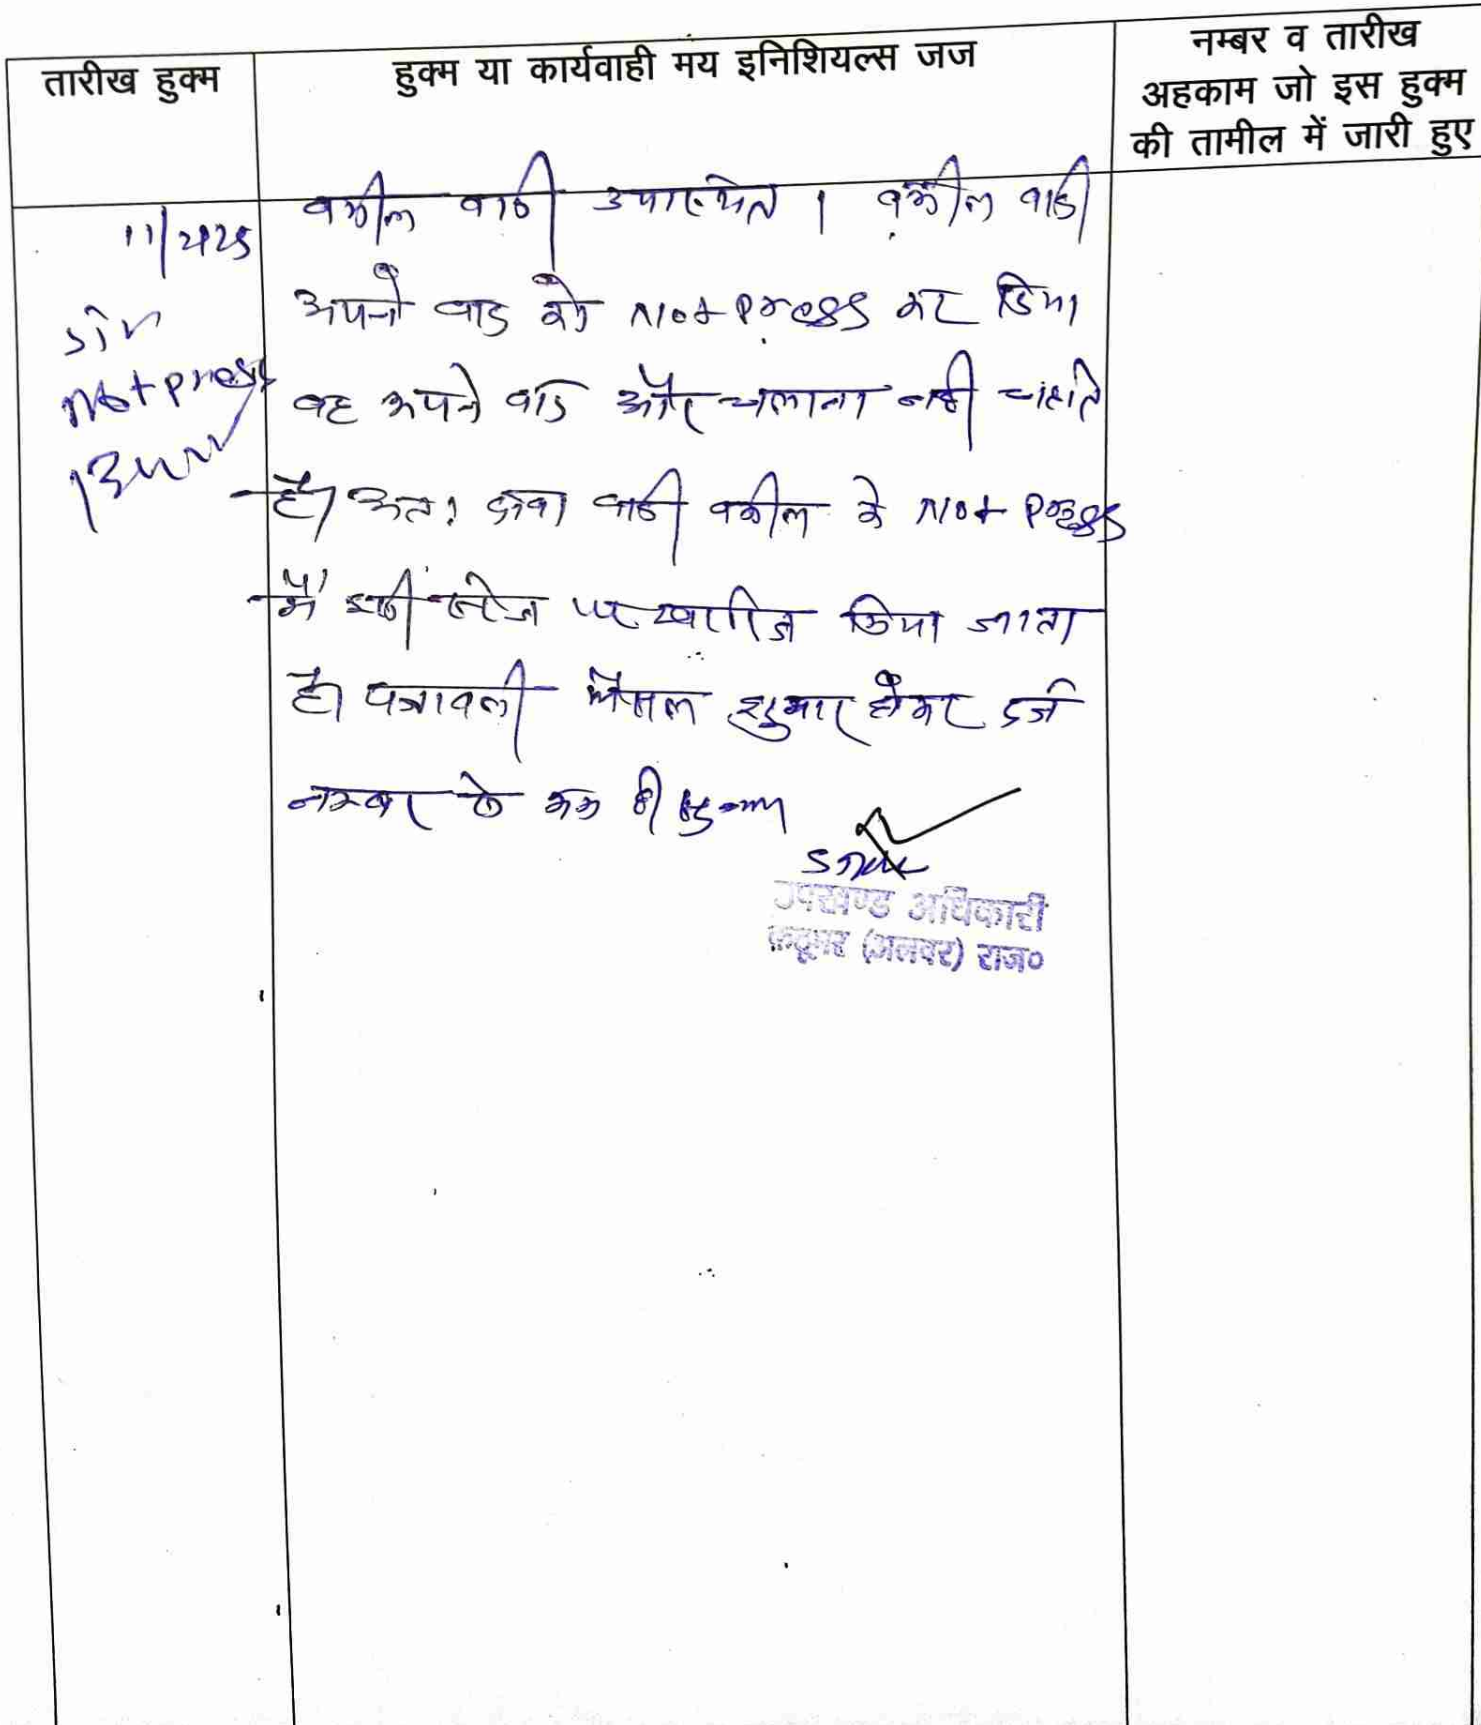 तारीख हुक्म
हुक्म या कार्यवाही मय इनिशियल्स जज
नम्बर व तारीख
अहकाम जो इस हुक्म
की तामील में जारी हुए
वकील वादी उपस्थित । वकील वादी
अपने वाद को Not Press कर दिया
वह अपने वाद और चलाना नही चाहते
है। अतः दावा वादी वकील के Not Press
में इसी स्टेज पर खारिज किया जाता
है। पत्रावली फैसल शुमार होकर दर्ज
नम्बर से कम हो
Sir
Not press
उपखण्ड अधिकारी
कठूमर (अलवर) राज०